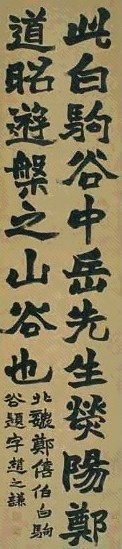 此白駒谷中岳先生熒陽鄭
道昭遊槃之山谷也
北魏鄭僖伯白駒
谷題字趙之謙